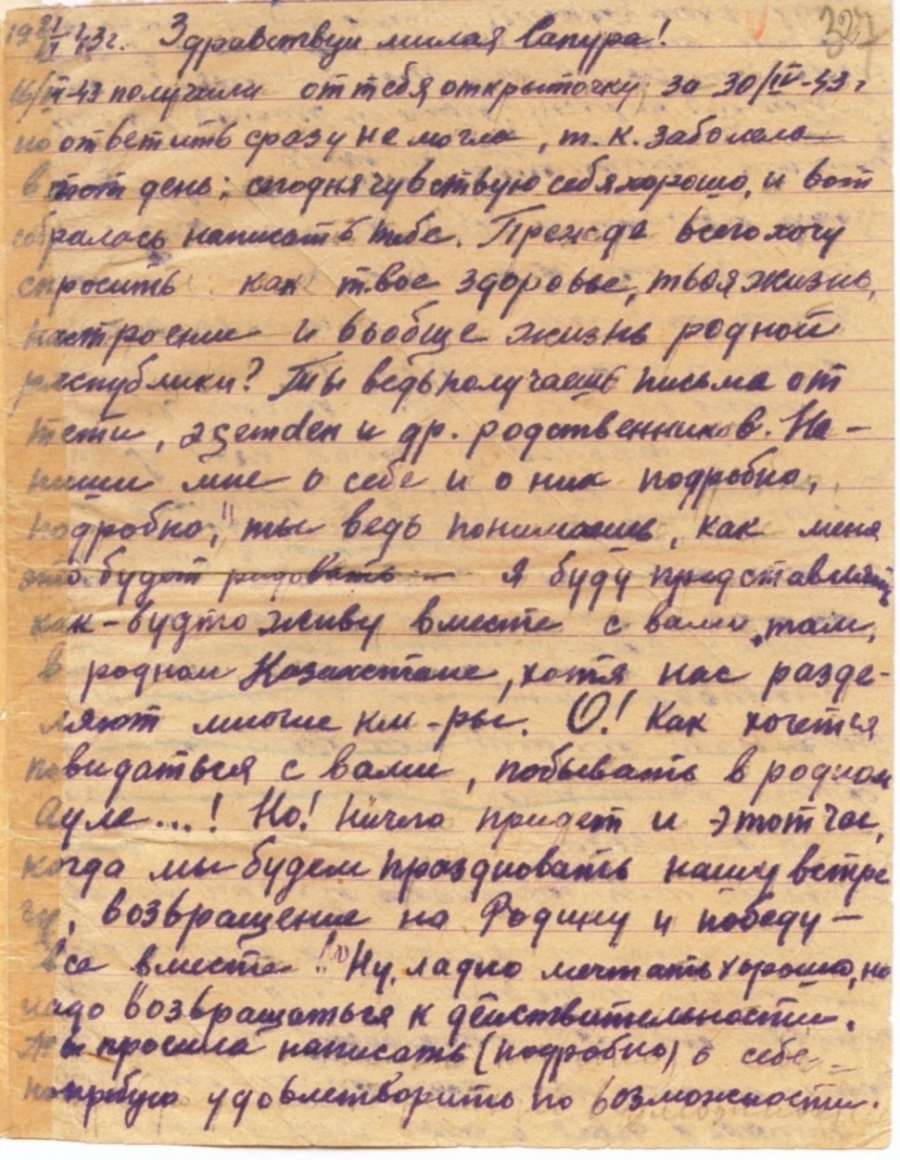 Здравствуй милая Сапура! 327
16/IV-43 получили от тебя открыточку за 30/IV-43 г
но ответить сразу не могла, т.к. заболела
в тот день; сегодня чувствую себя хорошо, и вот
собралась написать тебе. Прежде всего хочу
спросить как твое здоровье, твоя жизнь,
настроение и вообще жизнь родной
республики? Ты ведь получаешь письма от
тети, әgemden и др. родственников. На-
пиши мне о себе и о них подробно,
подробно," ты ведь понимаешь, как меня
это будет радовать — я буду представлять
как-будто живу вместе с вами, там,
в родном Казахстане, хотя нас разде-
ляют многие км-ры. О! Как хочется
повидаться с вами, побывать в родном
ауле...! Но! Ничего придет и этот час,
когда мы будем праздновать нашу встре
чу, возвращение на Родину и победу —
все вместе! Ну, ладно мечтать хорошо, но
надо возвращаться к действительности.
Ты просила написать (подробно) о себе
попробую удовлетворить по возможности.